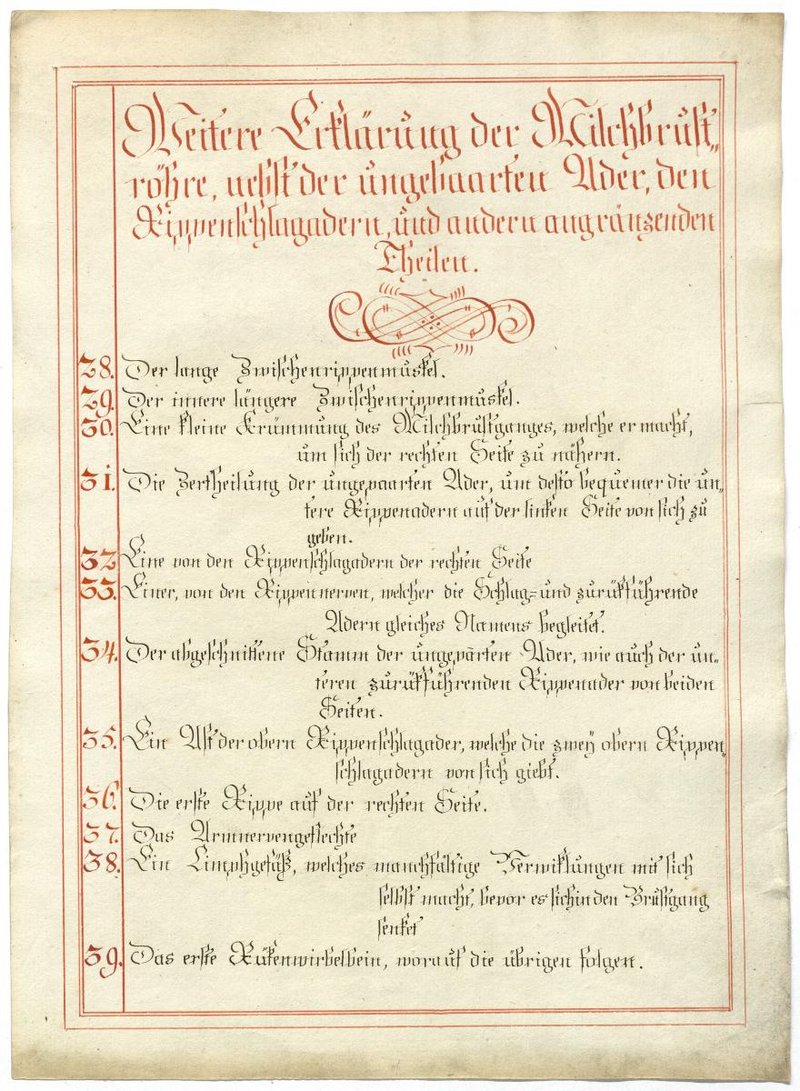 Weitere Erklärung der Milchbrust„
röhre, nebst der ungebaarten Ader, den
Rippenschlagadern, und andern angränzenden
Theilen.
28. Der lange Zwischenrippenmuskel.
29. Der innere längere Zwischenrippenmuskel.
30. Eine kleine Krümmung des Milchbrustganges, welche er macht,
um sich der rechten Seite zu nähern.
31. Die Zertheilung der ungepaarten Ader, um desto bequemer die un„
tere Rippenadern auf der linken Seite von sich zu
geben.
32 Eine von den Rippenschlagadern der rechten Seite
33. Einer, von den Rippennerven, welcher die Schlag- und zurükführende
Adern gleiches Namens begleitet.
34. Der abgeschnittene Stamm der ungepärten Ader, wie auch der un„
teren zurükführenden Rippenader von beiden
Seiten.
35. Ein Ast der obern Rippenschlagader, welche die zwey obern Rippen„
schlagadern von sich giebt.
36. Die erste Rippe auf der rechten Seite.
37. Das Armnervengeflechte
38. Ein Limphgefäß, welches manchfältige Verwiklungen mit sich
selbst macht, bevor es sich in den Brustgang
senket
39. Das erste Rükenwirbelbein, worauf die übrigen folgen.